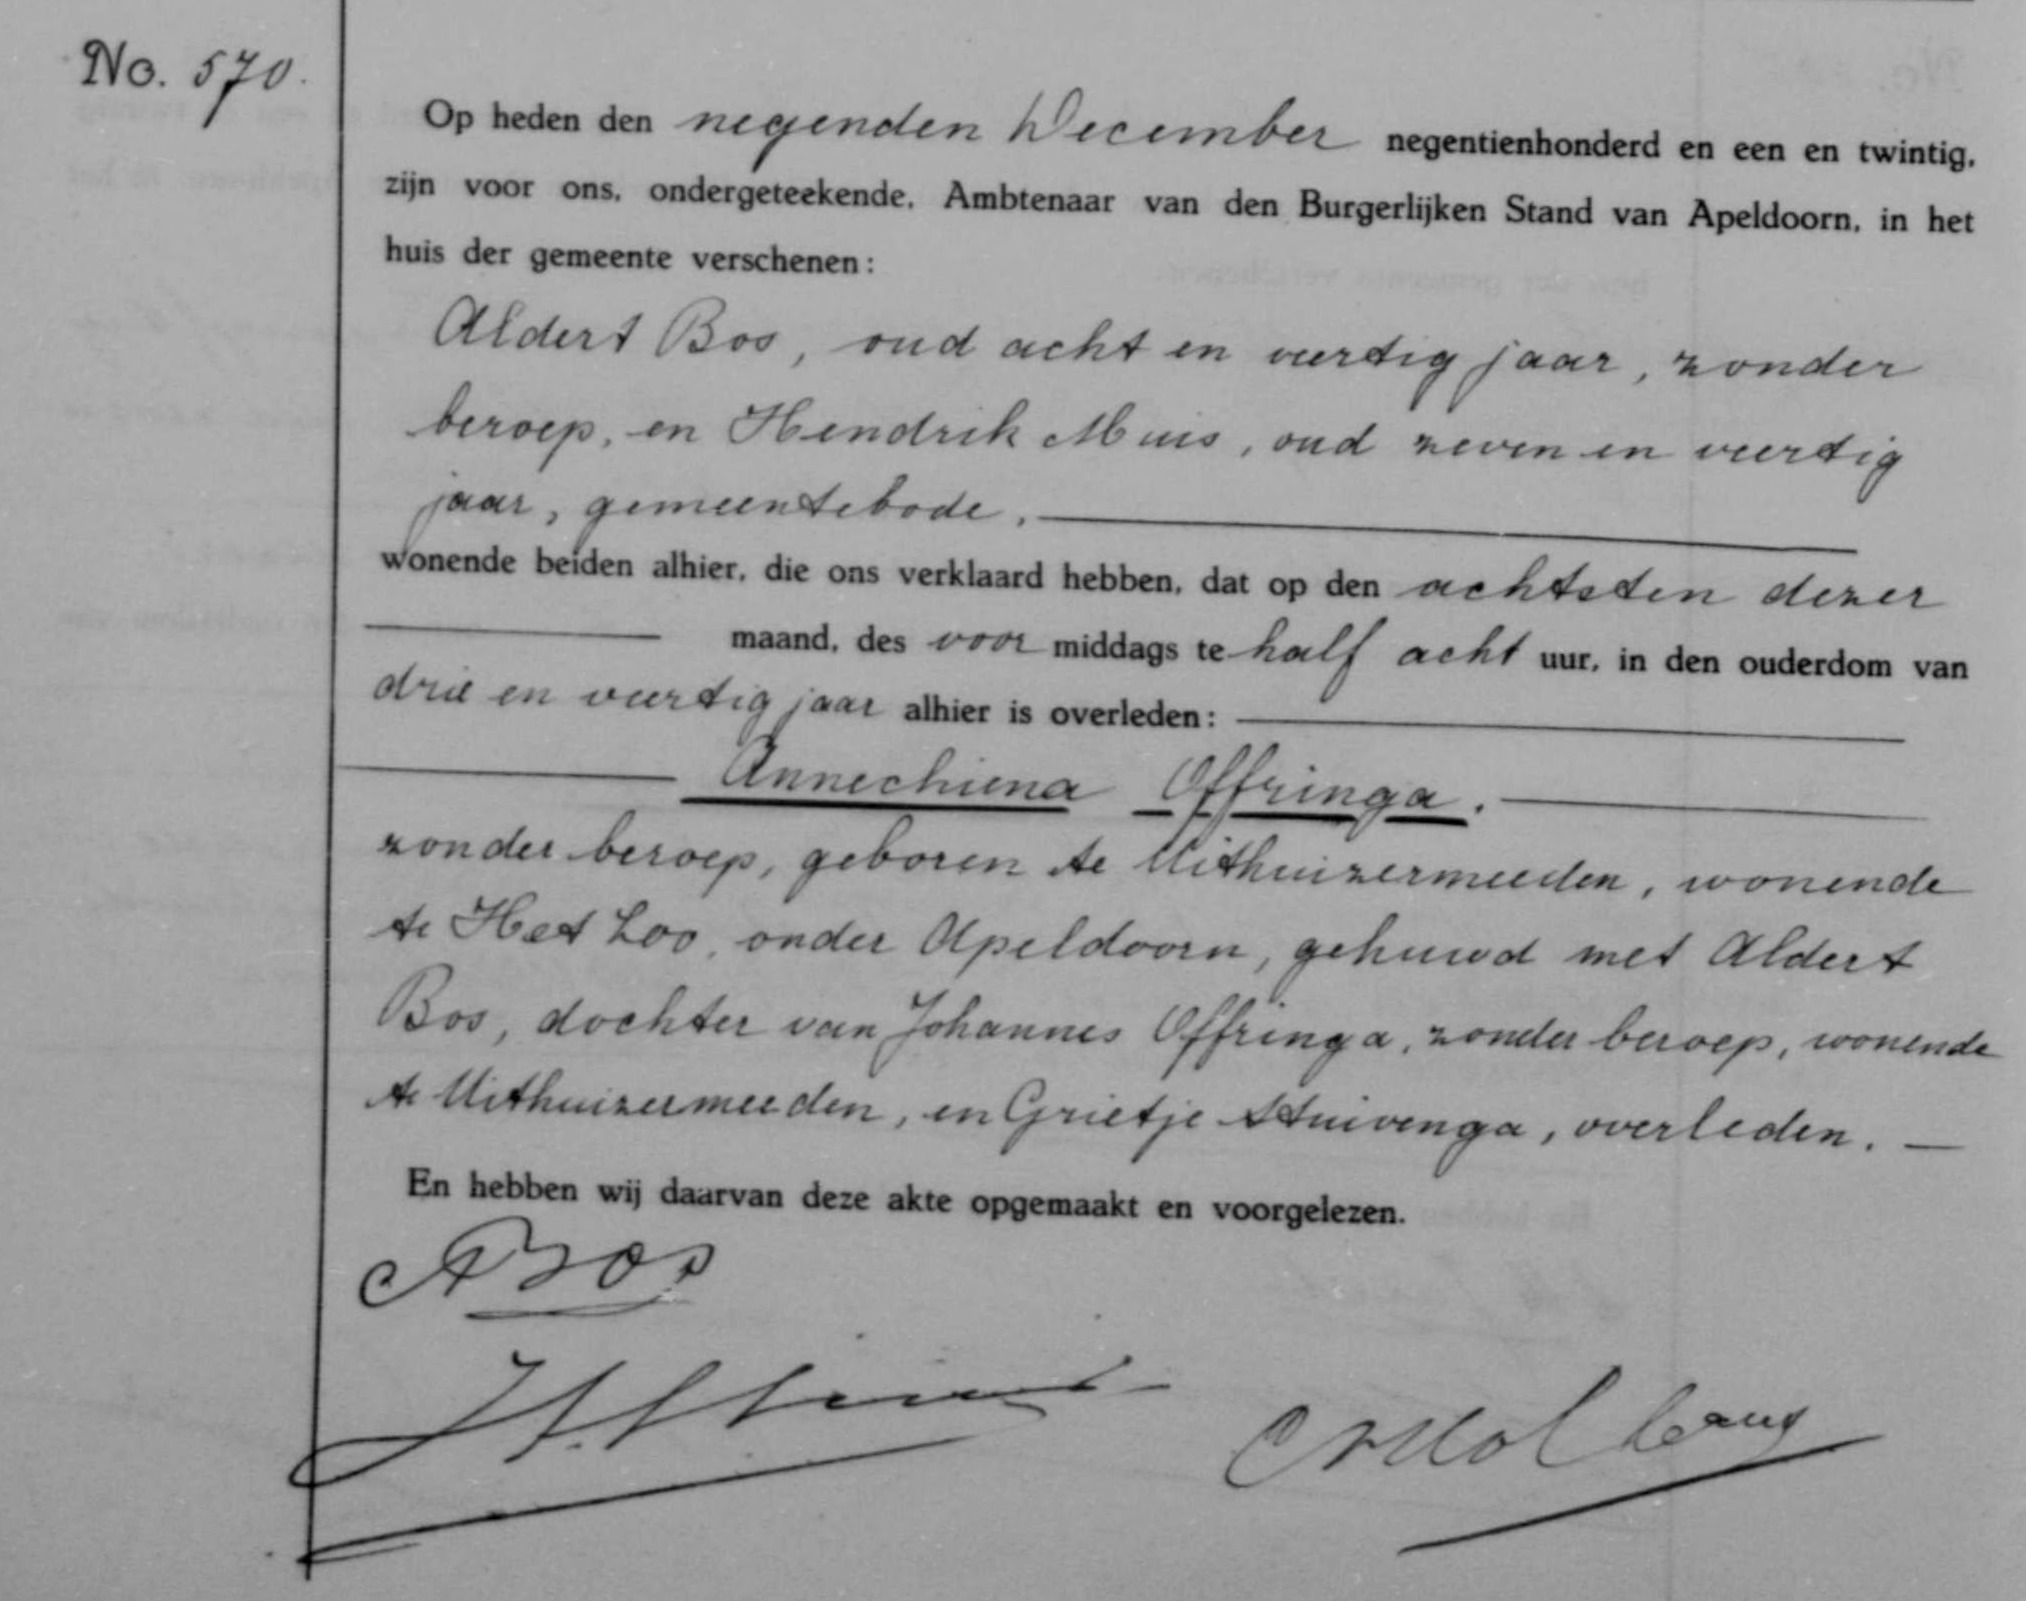 No. 570.
Op heden den negenden December negentienhonderd en een en twintig,
zijn voor ons, ondergeteekende, Ambtenaar van den Burgerlijken Stand van Apeldoorn, in het
huis der gemeente verschenen:
Aldert Bos, oud acht en veertig jaar, zonder
beroep, en Hendrik Muis, oud zeven en veertig
jaar, gemeentebode,
wonende beiden alhier, die ons verklaard hebben, dat op den achtsten dezer
maand, des voor middags te half acht uur, in den ouderdom van
drie en veertig jaar alhier is overleden:
Annechiena Offringa.
zonder beroep, geboren te Uithuizermeeden, wonende
te Het Loo, onder Apeldoorn, gehuwd met Aldert
Bos, dochter van Johannes Offringa, zonder beroep, wonende
te Uithuizermeeden, en Grietje Stuivenga, overleden.
En hebben wij daarvan deze akte opgemaakt en voorgelezen.
ABos